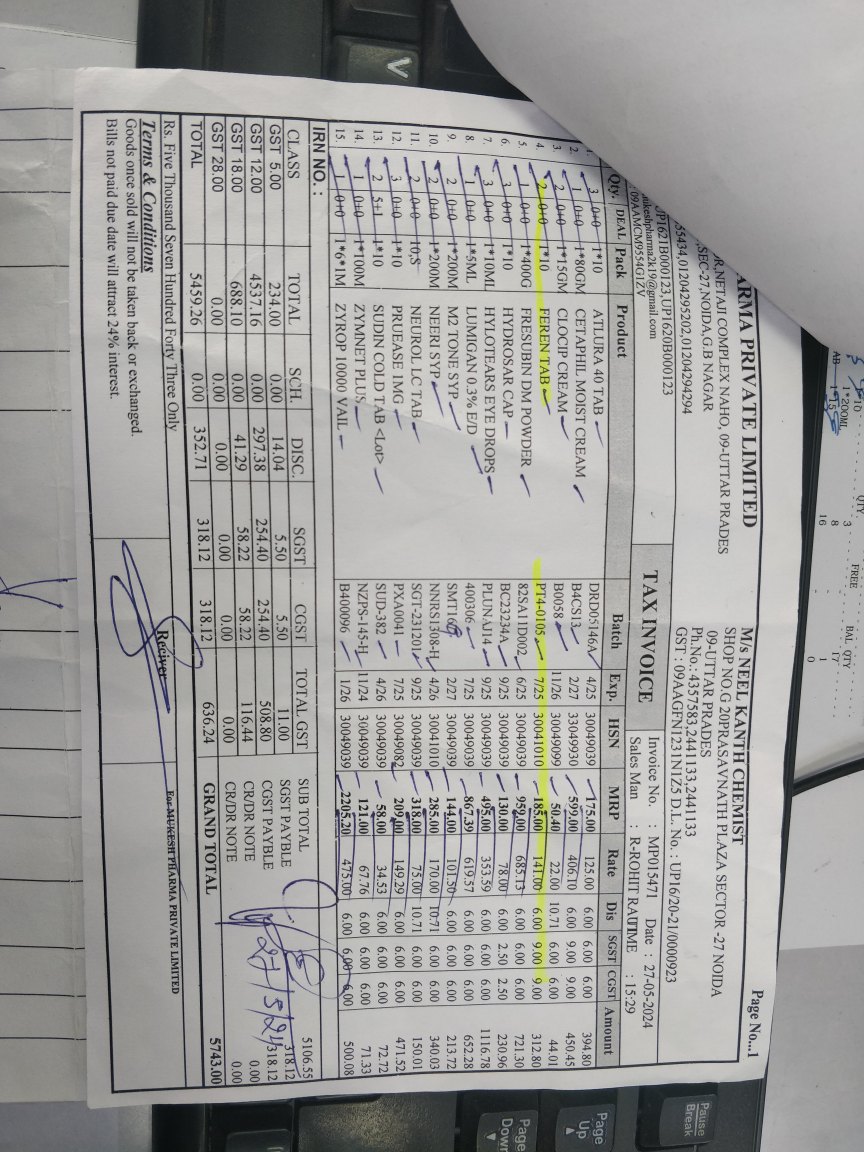 Page No...1
ARMA PRIVATE LIMITED
R,NETAJI COMPLEX NAHO, 09-UTTAR PRADES
,SEC-27,NOIDA,G.B NAGAR
55434,01204295202,01204294294
UP1621B000123,UP1620B000123
mukeshpharma2k19@gmail.com
: 09AAMCM9554G1ZV
M/s NEEL KANTH CHEMIST
SHOP NO.G 20PRASAVNATH PLAZA SECTOR -27 NOIDA
09-UTTAR PRADES
Ph.No.: 4357583,2441133,2441133
GST : 09AAGFN1231N1Z5 D.L. No. : UP16/20-21/0000923
TAX INVOICE
Invoice No. : MP015471 Date : 27-05-2024
Sales Man : R-ROHIT RAUTIME : 15:29
Qty. DEAL Pack Product Batch Exp. HSN MRP Rate Dis SGST CGST Amount
3 0+0 1*10 ATLURA 40 TAB DRD05146A 4/25 30049039 175.00 125.00 6.00 6.00 6.00 394.80
2. 1 0+0 1*80GM CETAPHIL MOIST CREAM B4CS13 2/27 33049930 599.00 406.10 6.00 9.00 9.00 450.45
3. 2 0+0 1*15GM CLOCIP CREAM B0058 11/26 30049099 50.40 22.00 10.71 6.00 6.00 44.01
4. 2 0+0 1*10 FEREN TAB PT4-0105 7/25 30041010 185.00 141.00 6.00 9.00 9.00 312.80
5. 1 0+0 1*400G FRESUBIN DM POWDER 82SA11D002 6/25 30049039 959.00 685.13 6.00 6.00 6.00 721.30
6. 3 0+0 1*10 HYDROSAR CAP BC23234A 9/25 30049039 130.00 78.00 6.00 2.50 2.50 230.96
7. 3 0+0 1*10ML HYLOTEARS EYE DROPS PLUNAJ14 9/25 30049039 495.00 353.59 6.00 6.00 6.00 1116.78
8. 1 0+0 1*5ML LUMIGAN 0.3% E/D 400306 7/25 30049039 867.39 619.57 6.00 6.00 6.00 652.28
9. 2 0+0 1*200M M2 TONE SYP 2/27 30049039 144.00 101.50 6.00 6.00 6.00 213.72
10. 2 0+0 1*200M NEERI SYP NNRS1308-H 4/26 30041010 285.00 170.00 10.71 6.00 6.00 340.03
11. 2 0+0 10,S NEUROL LC TAB SGT-231201 9/25 30049039 318.00 75.00 10.71 6.00 6.00 150.01
12. 3 0+0 1*10 PRUEASE 1MG PXA0041 7/25 30049082 209.00 149.29 6.00 6.00 6.00 471.52
13. 2 5+1 1*10 SUDIN COLD TAB <Lot> SUD-382 4/26 30049039 58.00 34.53 6.00 6.00 6.00 72.72
14. 1 0+0 1*100M ZYMNET PLUS NZPS-145-H 11/24 30049039 121.00 67.76 6.00 6.00 6.00 71.33
15. 1 0+0 1*6*1M ZYROP 10000 VAIL B400096 1/26 30049039 2205.20 475.00 6.00 6.00 6.00 500.08
IRN NO. :
CLASS TOTAL SCH. DISC. SGST CGST TOTAL GST
GST 5.00 234.00 0.00 14.04 5.50 5.50 11.00
GST 12.00 4537.16 0.00 297.38 254.40 254.40 508.80
GST 18.00 688.10 0.00 41.29 58.22 58.22 116.44
GST 28.00 0.00 0.00 0.00 0.00 0.00 0.00
TOTAL 5459.26 0.00 352.71 318.12 318.12 636.24
SUB TOTAL 5106.55
SGST PAYBLE 318.12
CGST PAYBLE 318.12
CR/DR NOTE 0.00
CR/DR NOTE 0.00
GRAND TOTAL 5743.00
27/5/24
Rs. Five Thousand Seven Hundred Forty Three Only
Terms & Conditions
Goods once sold will not be taken back or exchanged.
Bills not paid due date will attract 24% interest.
Reciver
For MUKESH PHARMA PRIVATE LIMITED
QTY. FREE BAL. QTY
1*200ML
3 17
8 1
16 0
V
Pause
Break
Page
Up
Page
Down